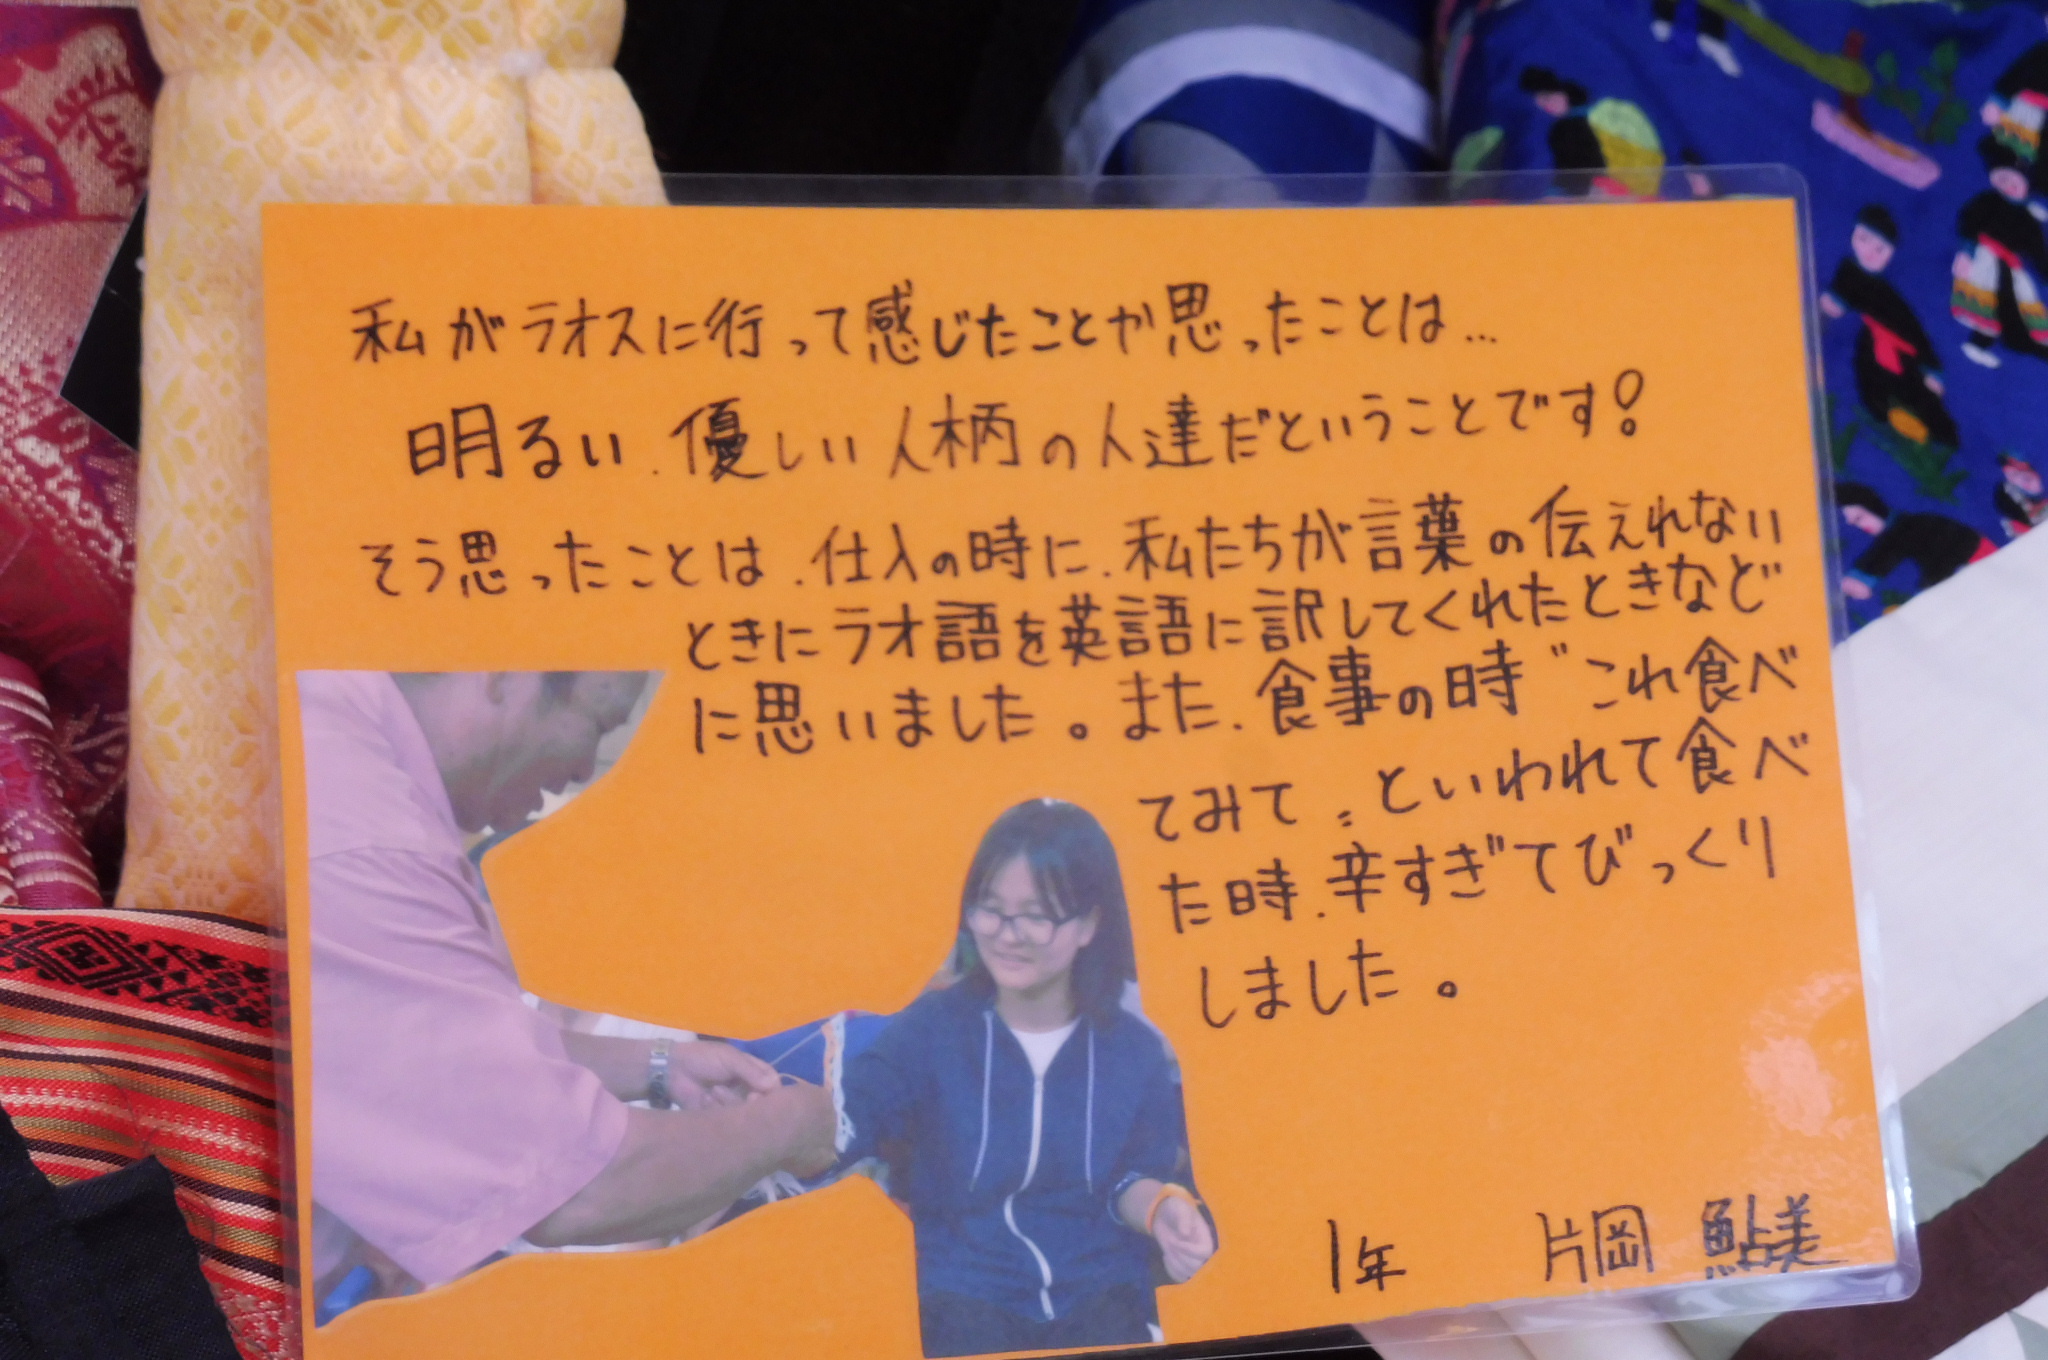 私がラオスに行って感じたことや思ったことは…
明るい、優しい人柄の人達だということです!
そう思ったことは、仕入の時に、私たちが言葉の伝えれない
ときにラオ語を英語に訳してくれたときなど
に思いました。また、食事の時〝これ食べ
てみて〟といわれて食べ
た時、辛すぎてびっくり
しました。
1年 片岡 鮎美